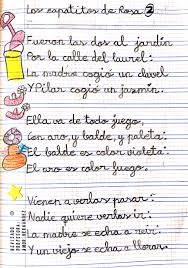 Los zapatitos de Rosa 2
Fueron las dos al jardín
Por la calle del laurel:
La madre cogió un clavel
Y Pilar cogió un jazmín.
Ella va de todo juego,
Con aro, y balde, y paleta:
El balde es color violeta:
El aro es color fuego.
Vienen a verlas pasar:
Nadie quiere verlas ir:
La madre se echa a reír:
Y un viejo se echa a llorar.